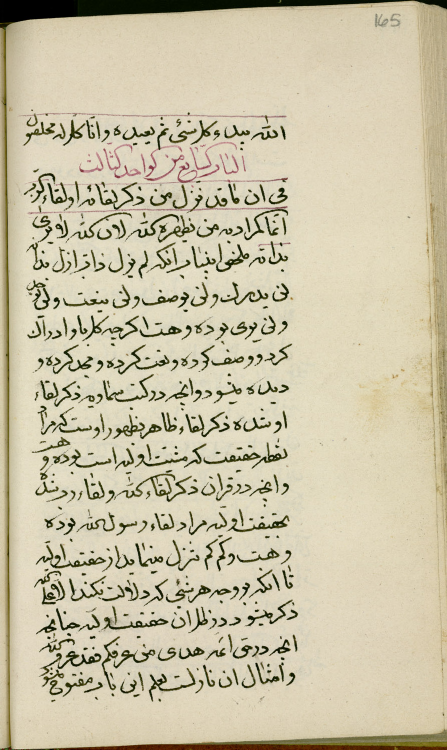 165
الله یبدء کلشئی ثم یعیده و انا کل له مخلصون
الباب السابع من الواحد الثالث
فی ان ما قد نزل من ذکر لقائه او لقاء الرب
انما المراد به من یظهره الله لان الله لا یری
بذاته ملخص این باب آنکه لم یزل ذات ازل بذاته
لن یدرک ولن یوصف ولن ینعت ولن یوحد
ولن یری بوده و هست اگرچه کل باو ادراک
کرده و وصف کرده و نعت کرده و مجد کرده و
دیده میشود و آنچه در کتب سماویه ذکر لقاء
او شده ذکر لقاء ظاهر بظهور اوست که مراد
نقطه حقیقت که مشیت اولیه است بوده و هست
و آنچه در قران ذکر لقاء الله و لقاء رب شده
بحقیقت اولیه مراد لقاء رسول الله بوده
و هست و کم کم تنزل مینماید از حقیقت اولیه
تا آنکه بوجه هر شئی که دلالت نکند الا علی الله
ذکر میشود در ظل ان حقیقت اولیه چنانچه
آنچه در حق ائمه هدی من عرفکم فقد عرف الله
و امثال ان نازلست بعلم این باب مفتوح میشود